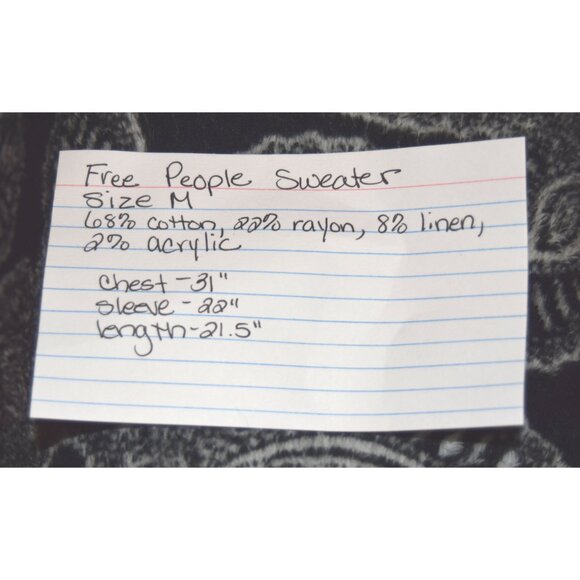 Free People Sweater
Size M
68% cotton, 22% rayon, 8% linen,
2% acrylic
Chest - 31"
Sleeve - 22"
length - 21.5"